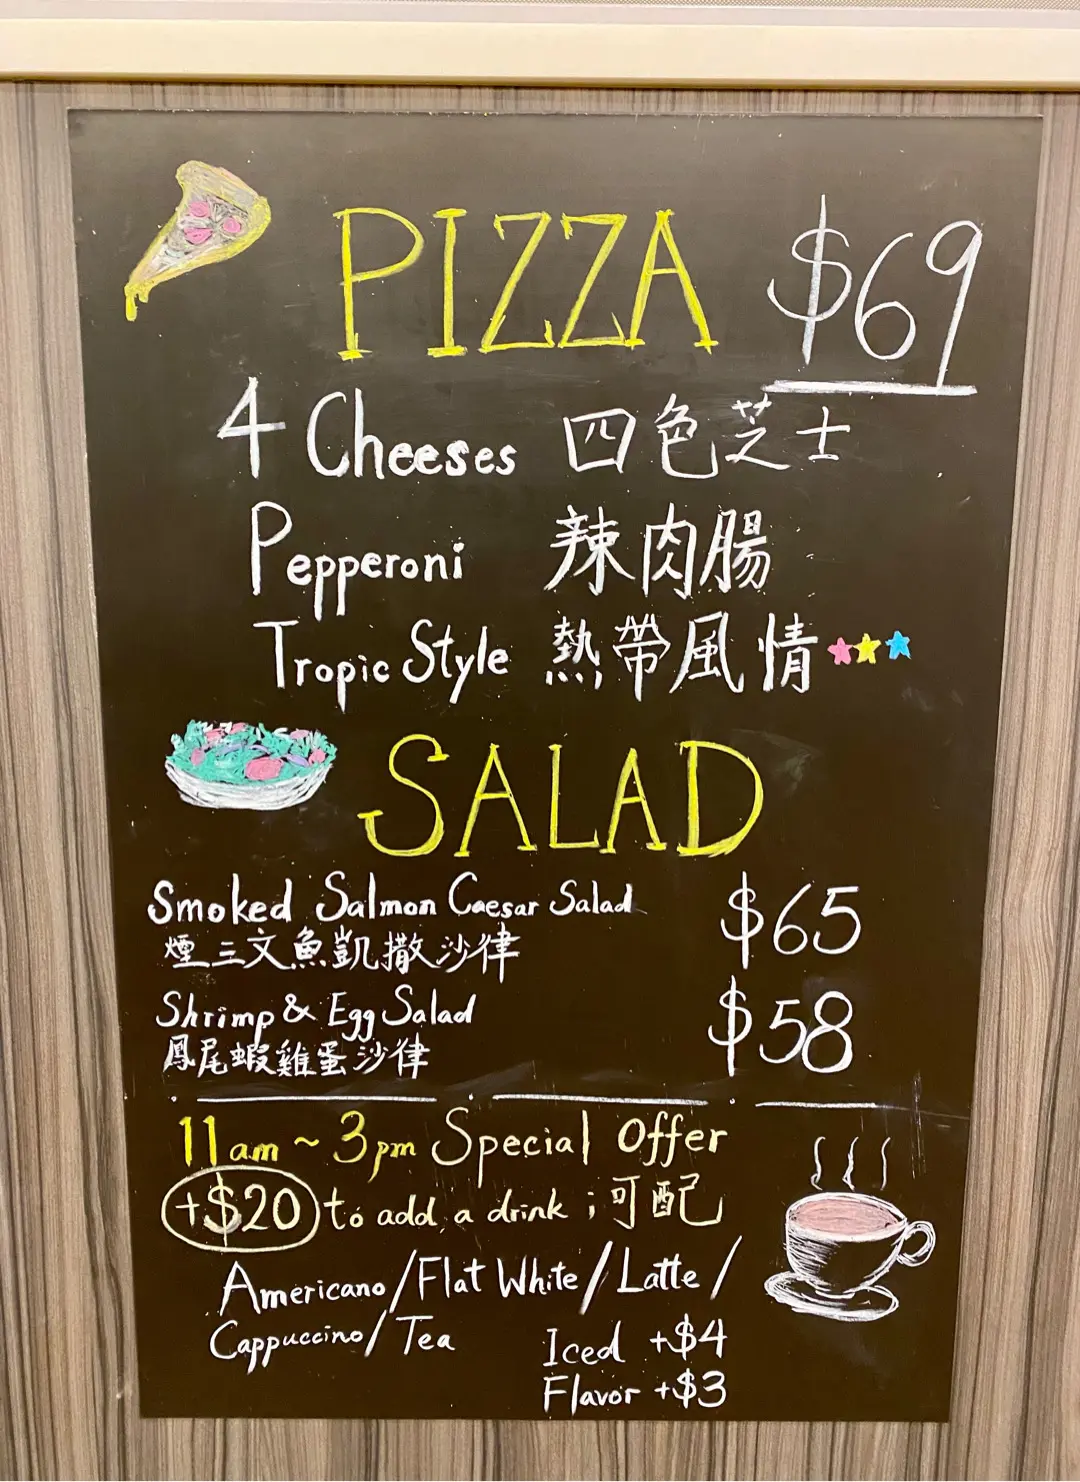 PIZZA $69
4 Cheeses 四色芝士
Pepperoni 辣肉腸
Tropic Style 熱帶風情
SALAD
Smoked Salmon Caesar Salad $65
煙三文魚凱撒沙律
Shrimp & Egg Salad $58
鳳尾蝦雞蛋沙律
11am ~ 3pm Special Offer
+$20 to add a drink ; 可配
Americano / Flat White / Latte /
Cappuccino / Tea
Iced +$4
Flavor +$3